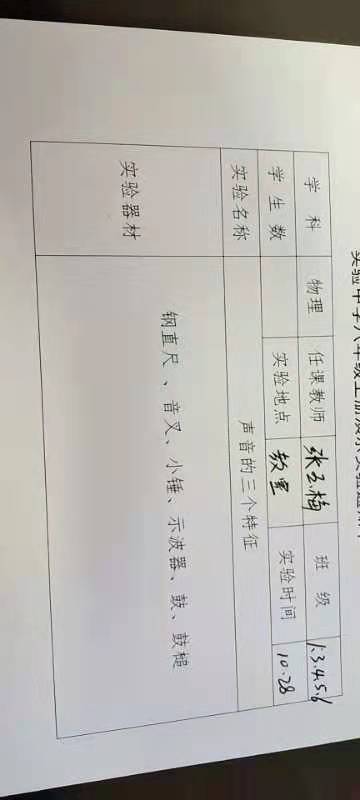 实验中学八年级上册演示实验通知单
学 科 物理 任课教师 张玉梅 班 级 1.3.4.5.6
学 生 数 实验地点 教室 实验时间 10.28
实验名称 声音的三个特征
实验器材 钢直尺、音叉、小锤、示波器、鼓、鼓槌